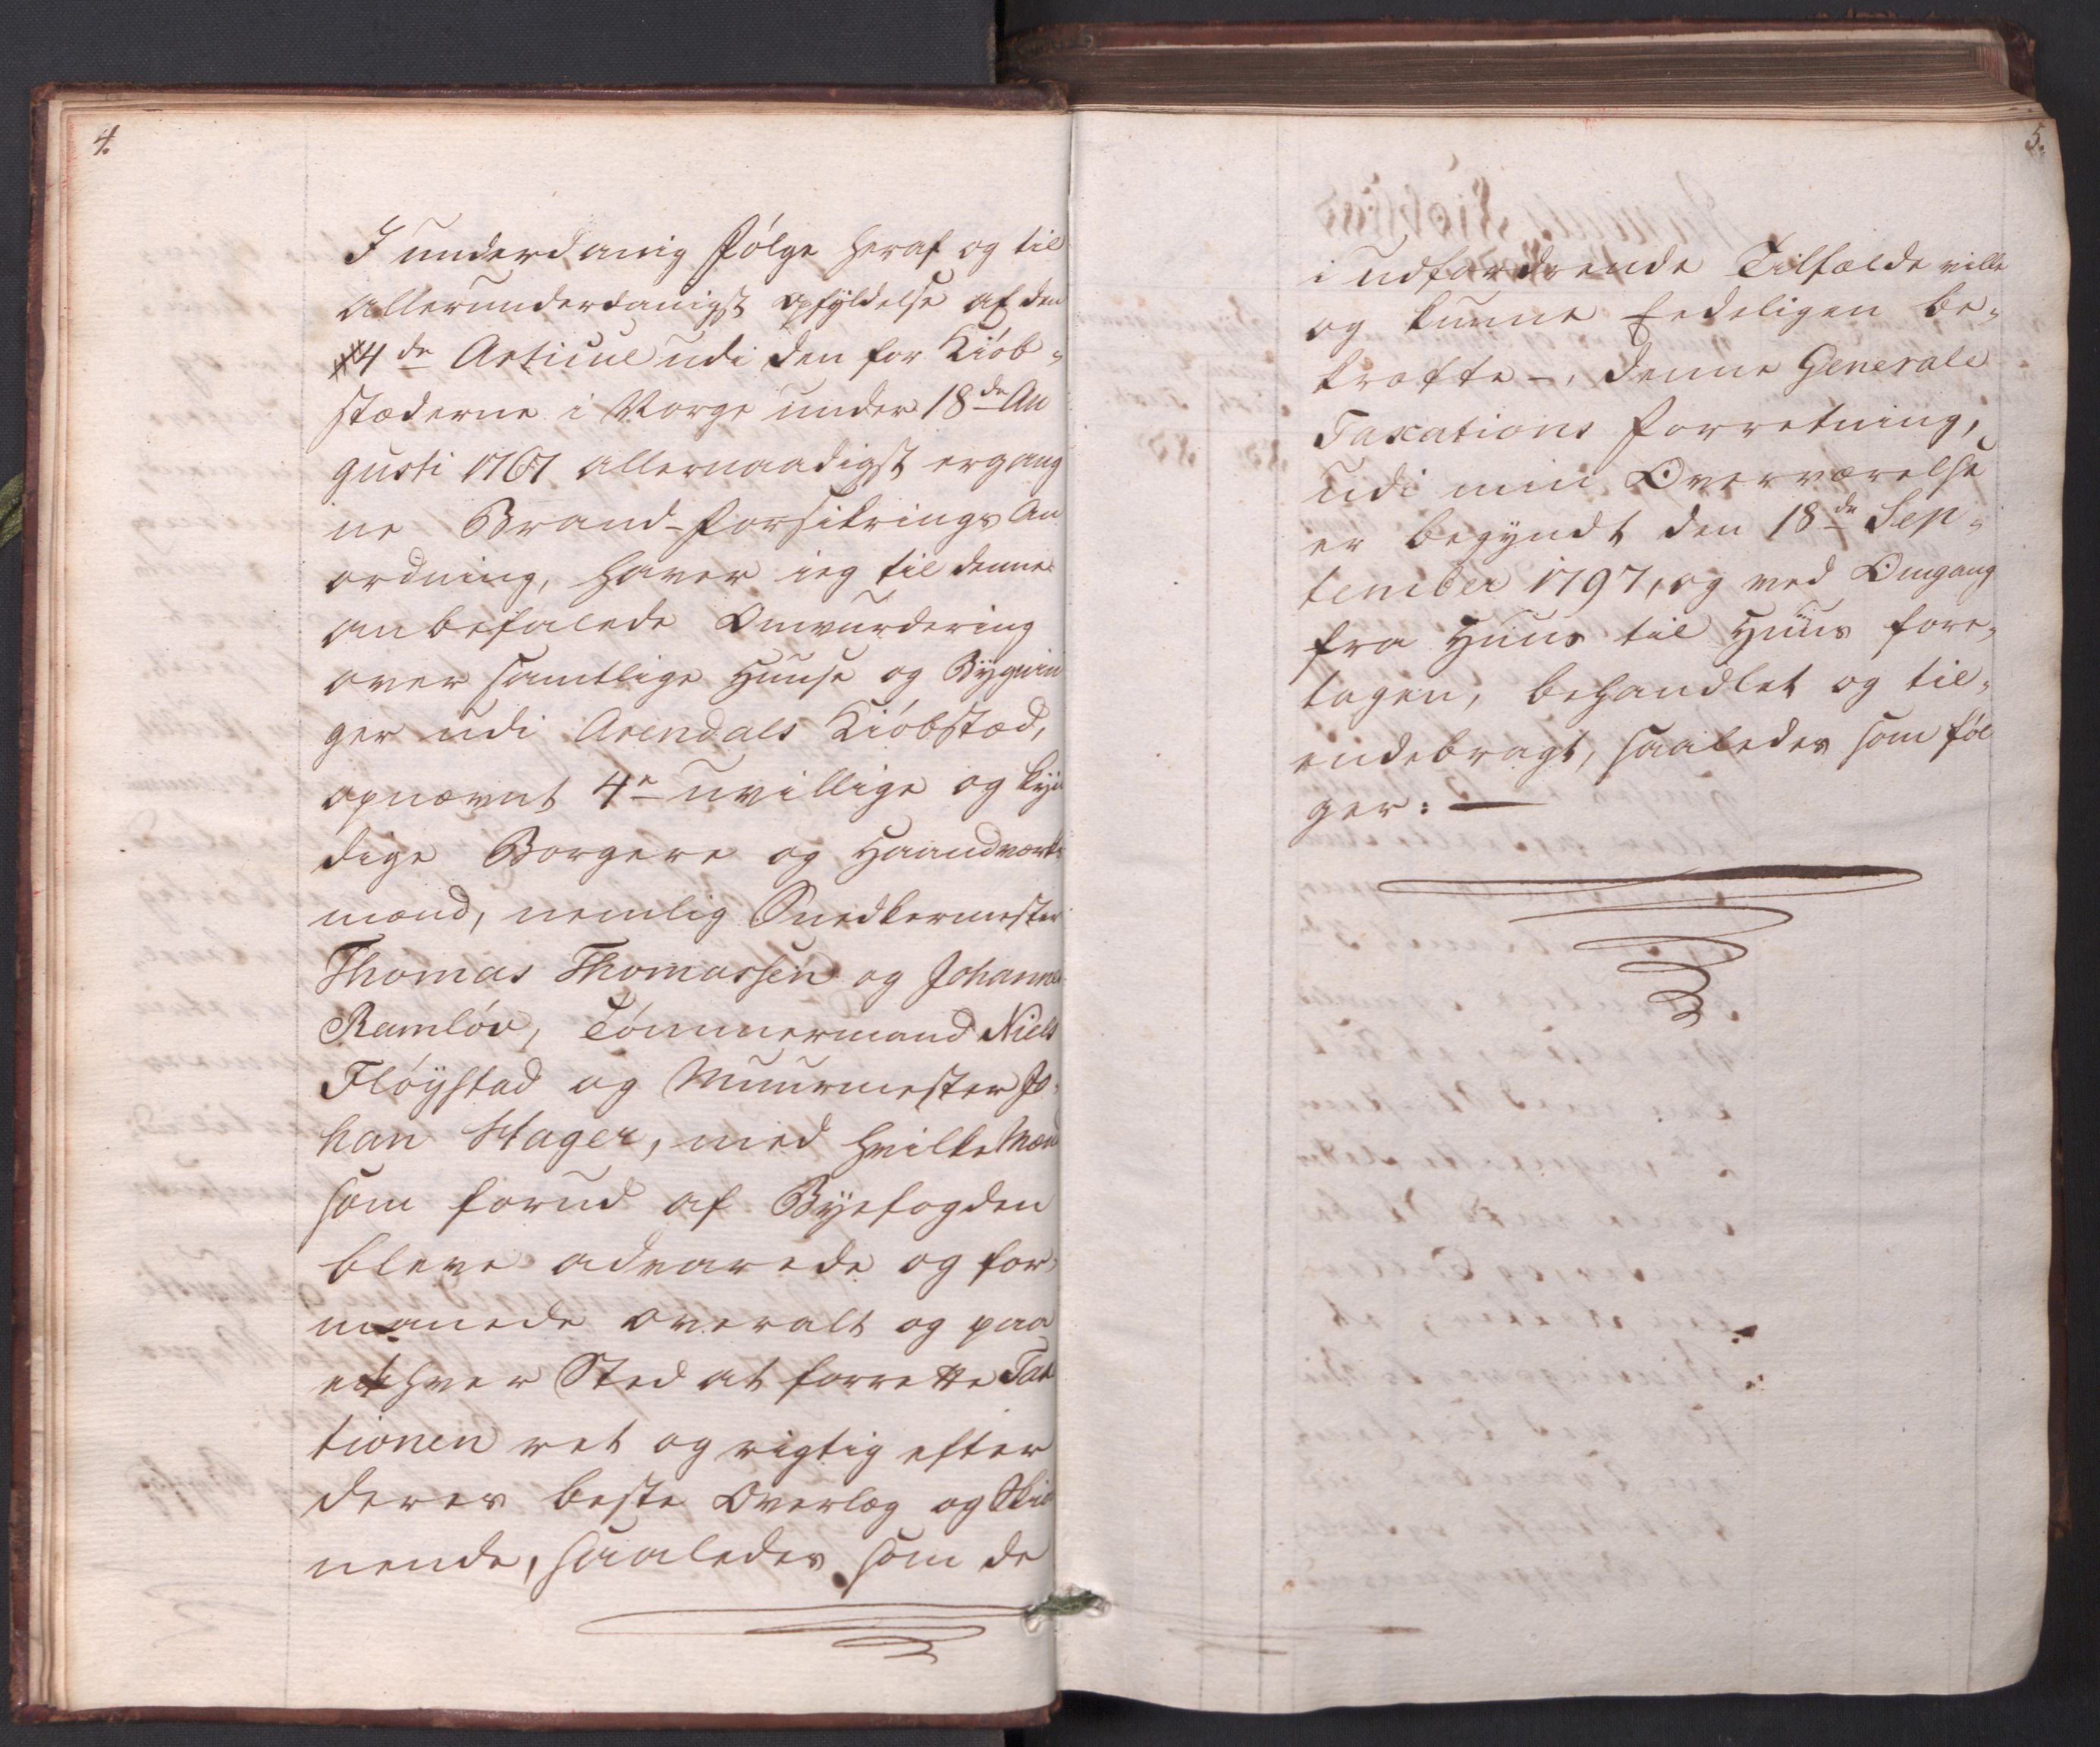 4.
I underdanig følge heraf og til
allerunderdanigst opfyldelse af den
4de Articul udi den for Kiøb-
stæderne i Norge under 18de Au
gusti 1767 allernaadigst ergang
ne Brand-forsikrings An
ordning, haver ieg til denne
anbefalede Omvurdering
over samtlige Huuse og Bygnin
ger udi Arendals Kiøbstæd,
opnævnt 4re uvillige og kyn
dige Borgere og Haandværks
mænd, nemlig Snedkermester
Thomas Thomassen og Johannes
Ramløv, Tømmermand Niels
Fløystad og Muurmester Jo-
han Hager, med hvilke Mænd
som forud af Byefogden
bleve advarede og for-
manede overalt og paa
ethver Sted at forrette Tax
tionen ret og rigtig efter
deres beste Overlæg og Skiø
nende, saaledes som de
5.
i udfordrende Tilfælde ville
og kunne Eedeligen be-
kræfte -, denne Generale
Taxations forretning,
udi min Overværelse
er begyndt den 18de Sep-
tember 1797, og ved Omgang
fra Huus til Huus fore-
tagen, behandlet og til-
endebragt, saaledes som føl
ger: —